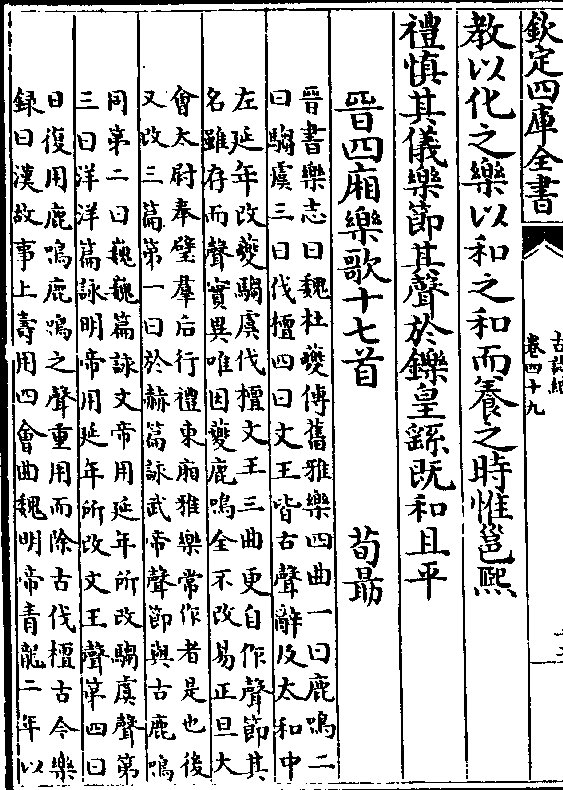 欽定四庫全書
卷四十九
教以化之樂以和之和而養之時惟邕熙
禮慎其儀樂節其聲於鑠皇繇既和且平
晉四廂樂歌十七首 荀勗
晉書樂志曰魏杜夔傳舊雅樂四曲一曰鹿鳴二
曰騶虞三曰伐檀四曰文王皆古聲辭及太和中
左延年改夔騶虞伐檀文王三曲更自作聲節其
名雖存而聲實異唯因夔鹿鳴全不改易正旦大
會太尉奉璧羣后行禮東廂雅樂常作者是也後
又改三篇第一曰於赫篇詠武帝聲節與古鹿鳴
同第二曰巍巍篇詠文帝用延年所改騶虞聲第
三曰洋洋篇詠明帝用延年所改文王聲第四曰
日復用鹿鳴鹿鳴之聲重用而除古伐檀古今樂
録曰漢故事上壽用四會曲魏明帝青龍二年以